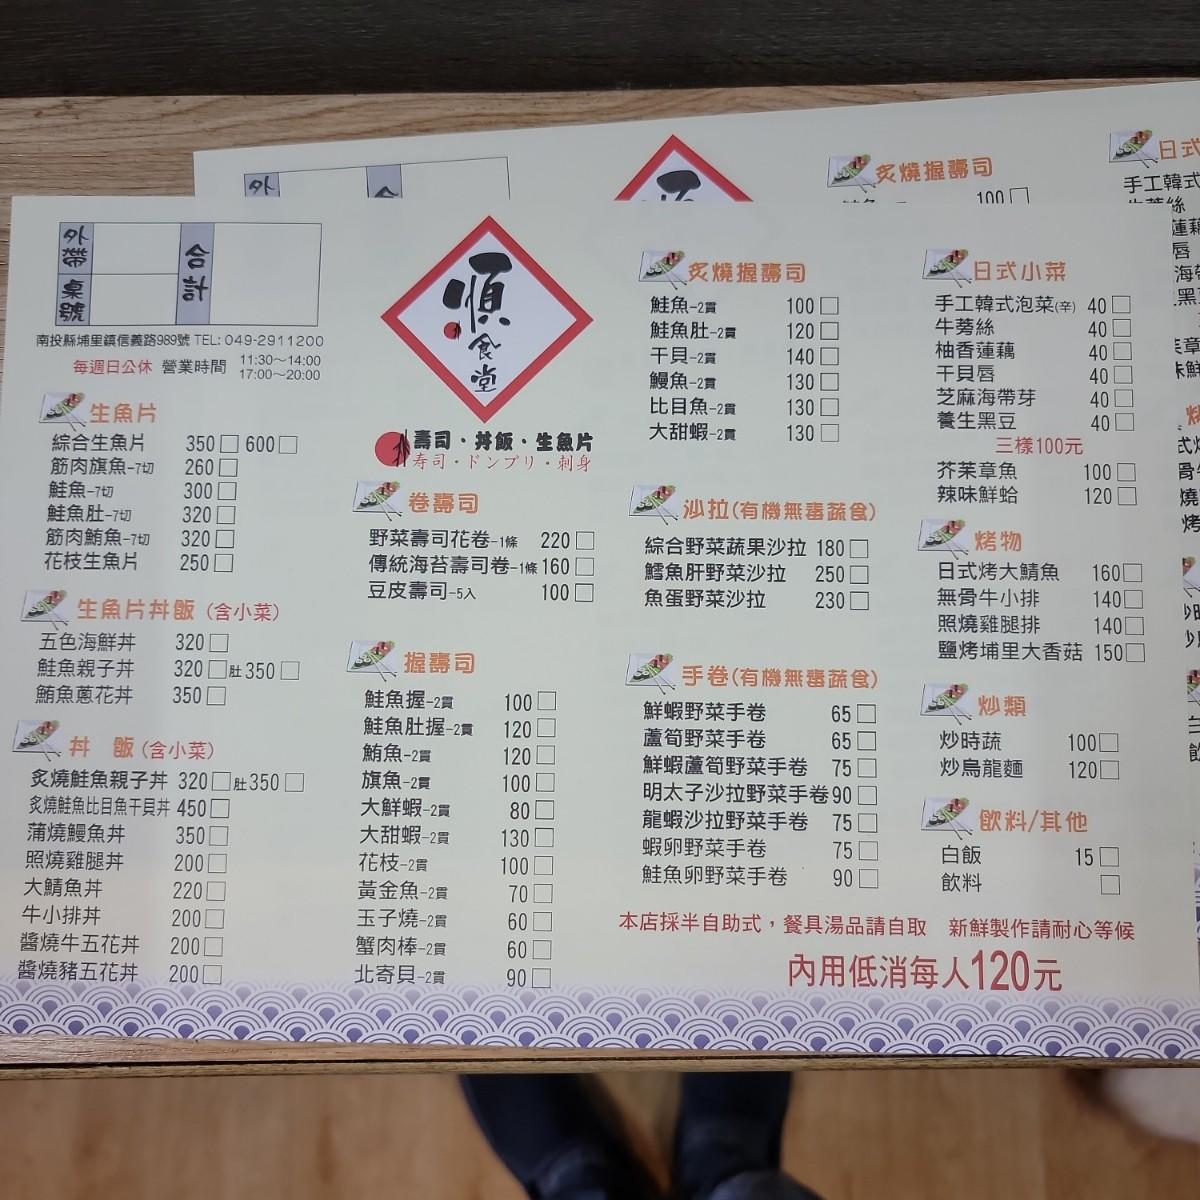 外帶
合計
桌號
南投縣埔里鎮信義路989號 TEL: 049-2911200
每週日公休 營業時間 11:30～14:00
17:00～20:00
生魚片
綜合生魚片 350□ 600□
筋肉旗魚-7切 260□
鮭魚-7切 300□
鮭魚肚-7切 320□
筋肉鮪魚-7切 320□
花枝生魚片 250□
生魚片丼飯(含小菜)
五色海鮮丼 320□
鮭魚親子丼 320□肚350□
鮪魚蔥花丼 350□
丼 飯(含小菜)
炙燒鮭魚親子丼 320□肚350□
炙燒鮭魚比目魚干貝丼 450□
蒲燒鰻魚丼 350□
照燒雞腿丼 200□
大鯖魚丼 220□
牛小排丼 200□
醬燒牛五花丼 200□
醬燒豬五花丼 200□
順
食
堂
壽司・丼飯・生魚片
寿司・ドンブリ・刺身
卷壽司
野菜壽司花卷-1條 220□
傳統海苔壽司卷-1條 160□
豆皮壽司-5入 100□
握壽司
鮭魚握-2貫 100□
鮭魚肚握-2貫 120□
鮪魚-2貫 120□
旗魚-2貫 100□
大鮮蝦-2貫 80□
大甜蝦-2貫 130□
花枝-2貫 100□
黃金魚-2貫 70□
玉子燒-2貫 60□
蟹肉棒-2貫 60□
北寄貝-2貫 90□
炙燒握壽司
鮭魚-2貫 100□
鮭魚肚-2貫 120□
干貝-2貫 140□
鰻魚-2貫 130□
比目魚-2貫 130□
大甜蝦-2貫 130□
沙拉(有機無毒蔬食)
綜合野菜蔬果沙拉 180□
鱈魚肝野菜沙拉 250□
魚蛋野菜沙拉 230□
手卷(有機無毒蔬食)
鮮蝦野菜手卷 65□
蘆筍野菜手卷 65□
鮮蝦蘆筍野菜手卷 75□
明太子沙拉野菜手卷 90□
龍蝦沙拉野菜手卷 75□
蝦卵野菜手卷 75□
鮭魚卵野菜手卷 90□
日式小菜
手工韓式泡菜(辛) 40□
牛蒡絲 40□
柚香蓮藕 40□
干貝唇 40□
芝麻海帶芽 40□
養生黑豆 40□
三樣100元
芥茉章魚 100□
辣味鮮蛤 120□
烤物
日式烤大鯖魚 160□
無骨牛小排 140□
照燒雞腿排 140□
鹽烤埔里大香菇 150□
炒類
炒時蔬 100□
炒烏龍麵 120□
飲料/其他
白飯 15□
飲料 □
本店採半自助式，餐具湯品請自取 新鮮製作請耐心等候
內用低消每人120元
外
炙燒握壽司
100□
日式
手工韓式